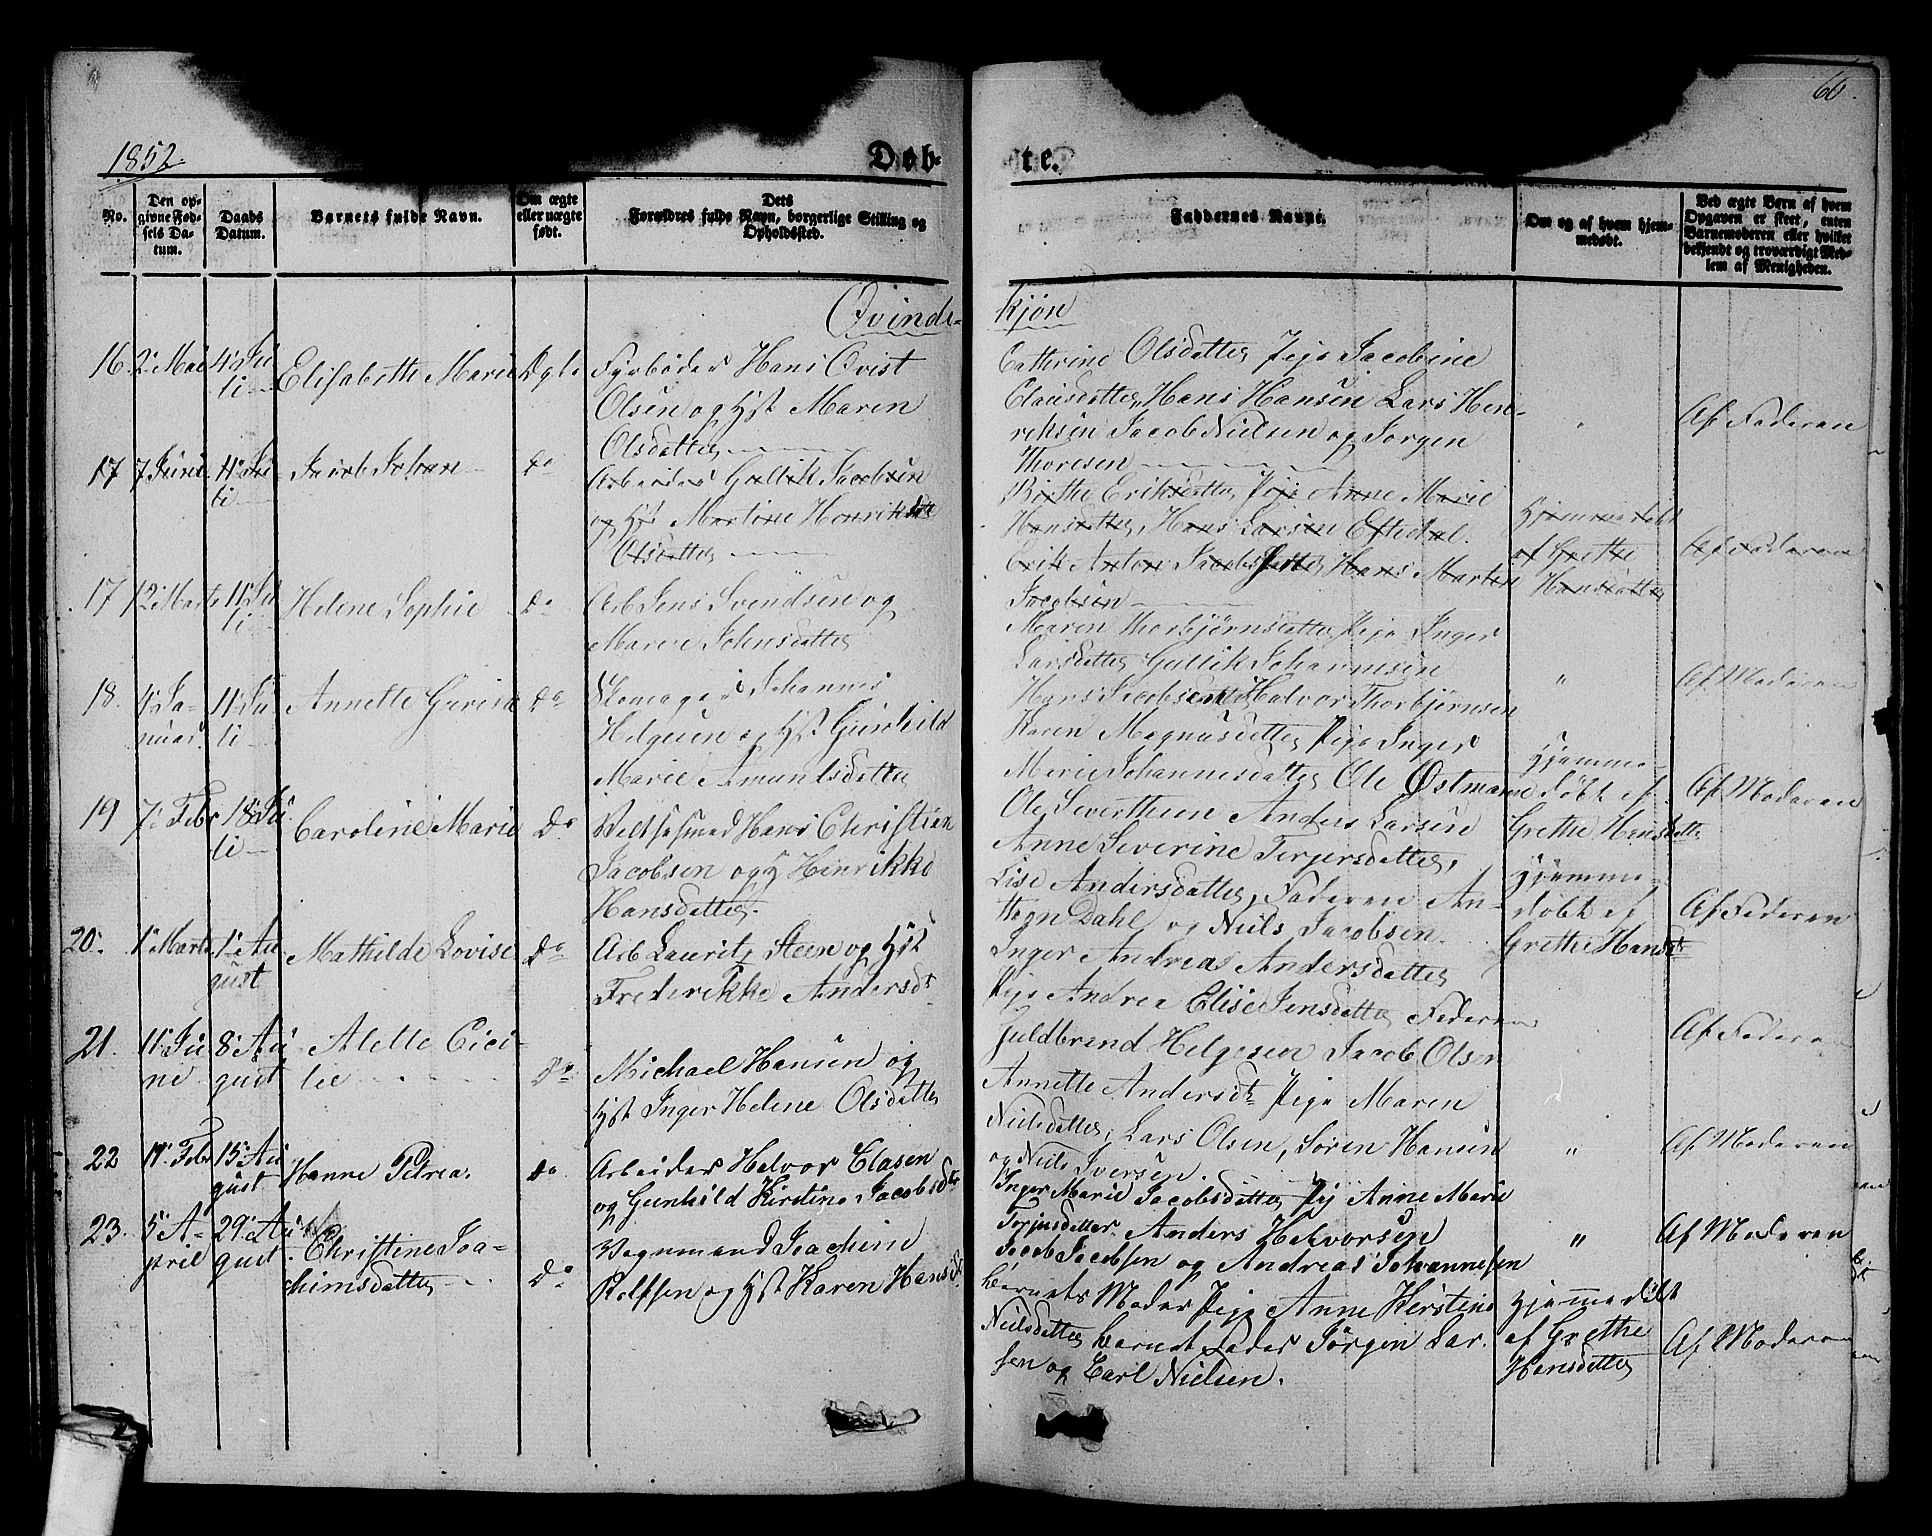 60.
1852.
Døb-
te.
No.
Den op-
givne Fød-
sels Da-
tum.
Daabs
Datum.
Barnets fulde Navn.
Om ægte
eller uægte
født.
Dets
Forældres fulde Navn, borgerlige Stilling og
Opholdssted.
Faddernes Navne.
Om og af hvem hjem-
medøbt.
Ved ægte Børn af hvem
Opgaven er skeet, enten
Barnemoderen eller hvilket
bekjendt og troværdigt Med-
lem af Menigheden.
Qvinde-
kjøn
16. 2 Mai 4' Ju
li
Elisabeth Marie
Ægte
Fyrbøder Hans Qvist
Olsen og Hst Maren
Olsdatter
Cathrine Olsdatter Pige Jacobine
Clausdatter, Hans Hansen Lars Hen-
riksen Jacob Nielsen og Jørgen
Thoresen
Af Faderen
17 7 Juni 11' Ju
li
Jacob Johan
do
Arbeider Gullik Jacobsen
og Hst Martine Henriksdtr
Olsdatter
Birthe Eriksdatter Pige Anne Marie
Hansdatter, Hans Larsen Eftedal.
Erik Anton Jacobsen Hans Marten
Jacobsen
Hjemmedøbt
af Grethe
Hansdatter
Af Faderen
17 12' Marts 11' Ju
li
Helene Sophie
do
Arb Jens Svendsen og
Maren Johnsdatter
Maren Thorbjørnsdatter Pige Inger
Larsdatter Gullik Johannesen
Hans Jacobsen Halvor Thorbjørnsen
"
Af Moderen
18. 4' Ja-
nuar. 11' Ju
li
Annette Gurine
do
Skomager Johannes
Helgesen og Hst Gunhild
Marie Amundsdatter
Karen Magnusdatter Pige Inger
Marie Johannesdatter Ole Østmann
Ole Sivertsen Anders Larsen
Hjemme-
døbt af
Grethe Hansdatter
Af Moderen
19 7' Febr 18' Ju
li
Caroline Marie
Do
Hans Christian
Jacobsen og H Henrikke
Hansdatter.
Anne Severine Terjersdatter,
Lise Andersdatter, Faderen An-
Dahl og Niels Jacobsen.
Hjemme-
døbt af
Grethe Hansdtr
Af Faderen
20. 1' Marts 1' Au
gust
Mathilde Lovise
Do
Arb Lauritz Steen og Hst
Frederikke Andersdtr
Inger Andreas Andersdatter
Pige Andrea Elise Jensdatter Faderen
Guldbrand Helgesen Jacob Olsen
Af Faderen
21. 11' Ju
ni 8' Au
gust
Alette Ceci-
lie
Do
Michael Hansen og
Hst Inger Helene Olsdatter
Annette Andersdtr Pige Maren
Nielsdatter, Lars Olsen, Søren Hansen
og Niels Iversen.
"
Af Moderen
22 17' Febr 15' Au
gust
Hanne Petrea.
do
Arbeider Halvor Clasen
og Gunhild Kirstine Jacobsdtr
Inger Marie Jacobsdatter Pig Anne Marie
Torjusdatter Anders Halvorsen
Jacob Jacobsen og Andreas Johannesen
"
Af Moderen
23. 5' A-
pril 29' Au
gust
Christine Joa-
chimsdatter
Do
Vognmand Joachim
Rolfsen og Hst Karen Hansdtr
Barnets Moder Pige Anne Kirstine
Nielsdatter Barnets Fader Jørgen Lar-
sen og Carl Nielsen.
Hjemmedøbt
af Grethe
Hansdatter
Af Moderen